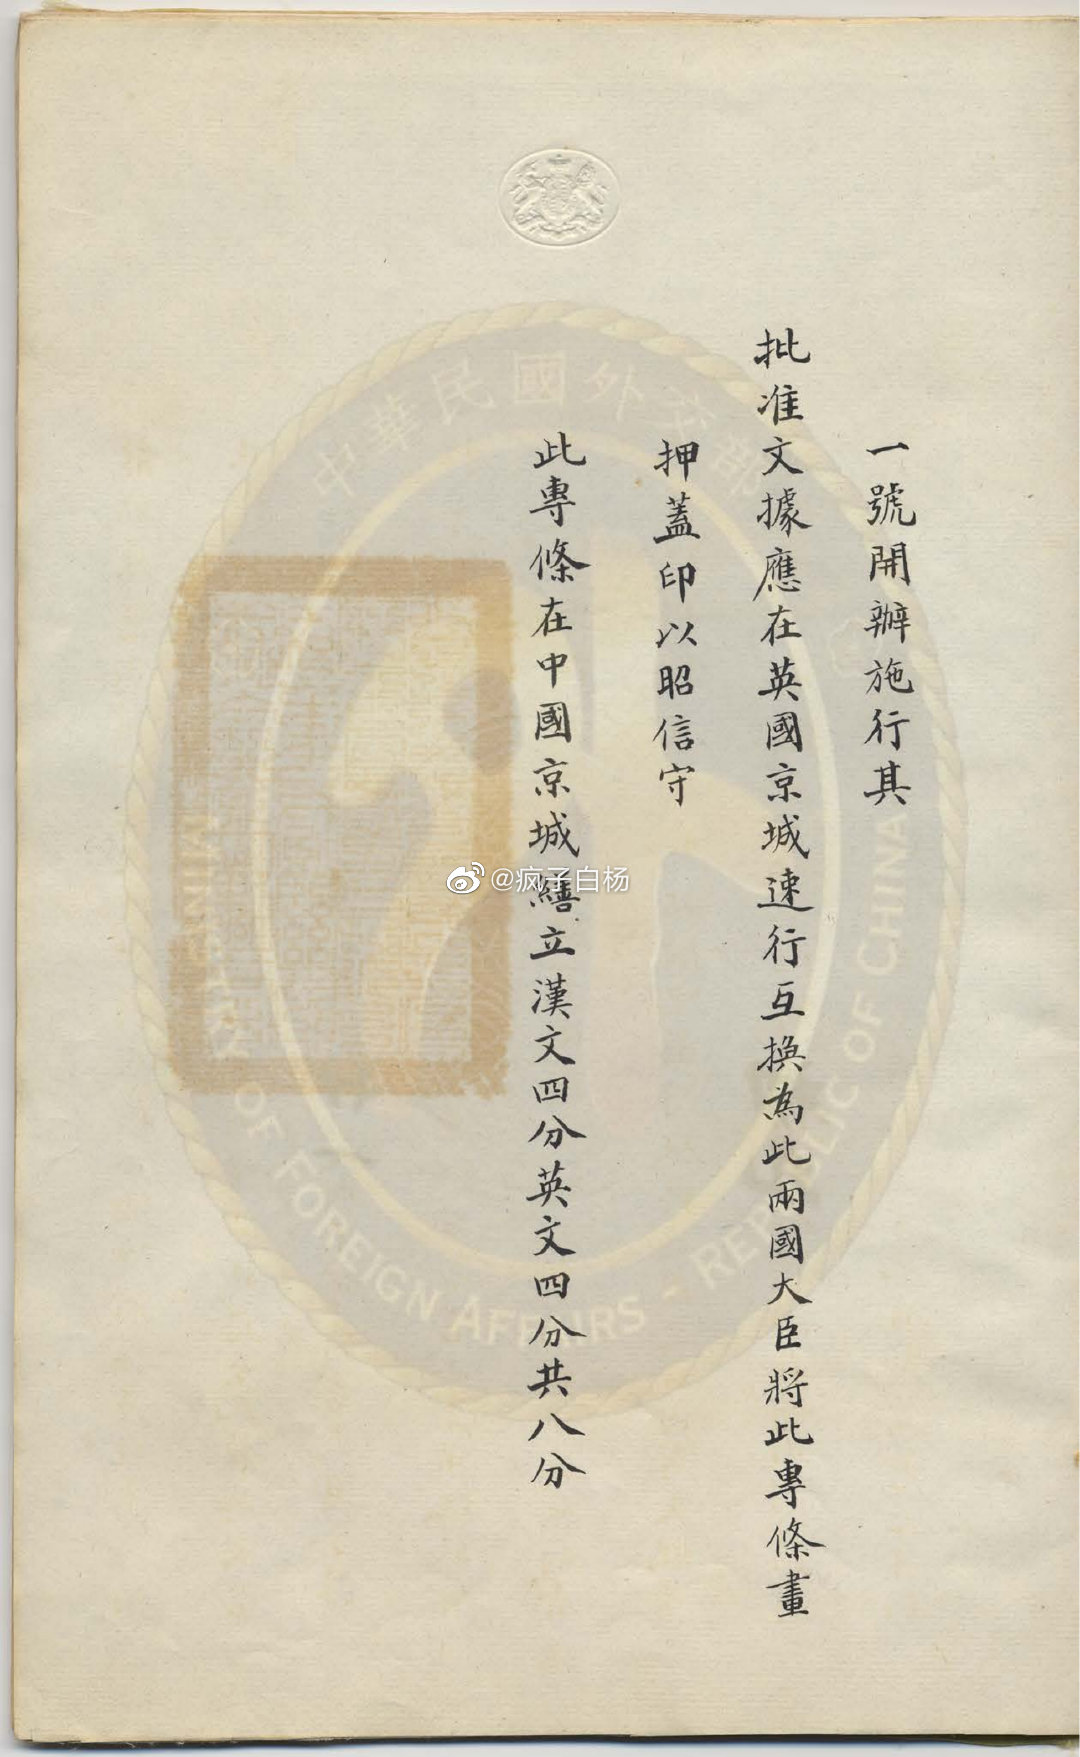 一號開辦施行其
批准文據應在英國京城速行互換為此兩國大臣將此專條畫
押蓋印以昭信守
此專條在中國京城繕立漢文四分英文四分共八分
中華民國外交部
MINISTRY OF FOREIGN AFFAIRS - REPUBLIC OF CHINA
@疯子白杨